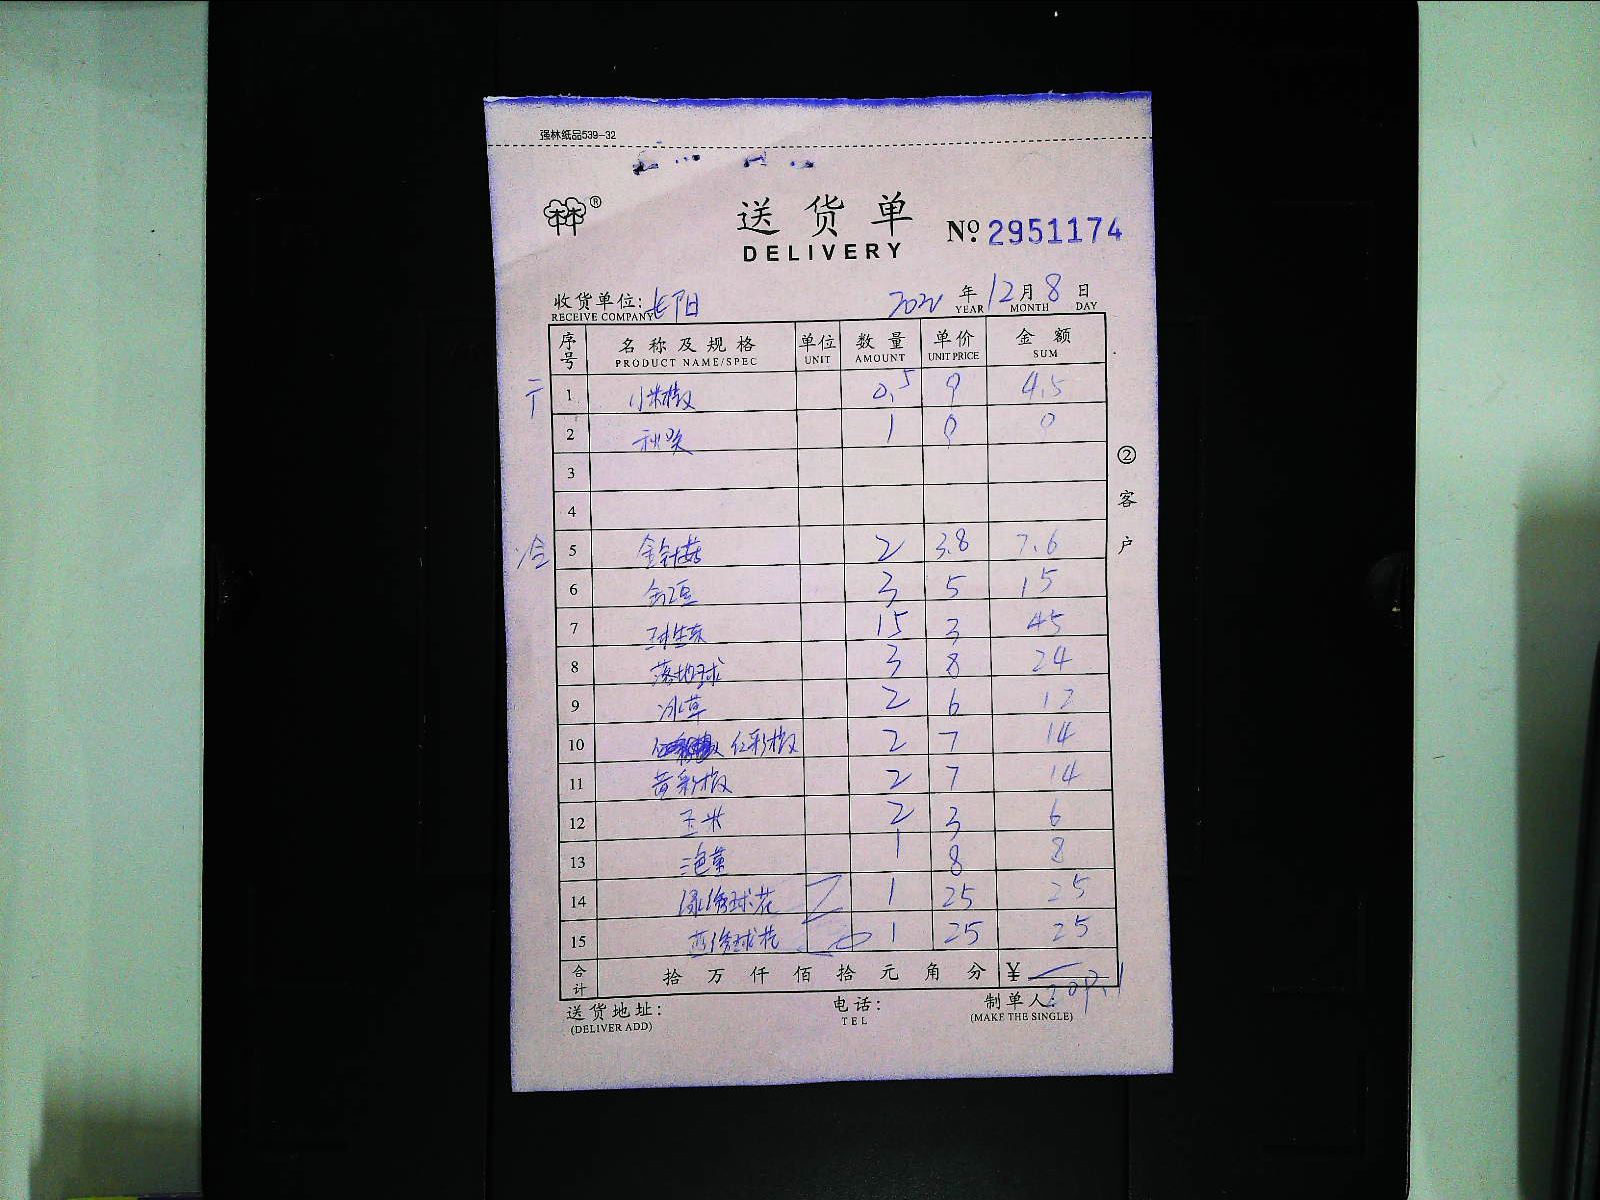 强林纸品539-32
®
送货单
DELIVERY
No. 2951174
收货单位: 长阳
RECEIVE COMPANY
年 12 月 8 日
YEAR MONTH DAY
序号 名称及规格 单位 数量 单价 金额
PRODUCT NAME/SPEC UNIT AMOUNT UNIT PRICE SUM
1 小米椒 0.5 9 4.5
2 秋葵 1 0 0
3
4
冷 5 金针菇 2 3.8 7.6
6 3 5 15
7 球生菜 15 3 45
8 落地球 3 8 24
9 冰草 2 6 12
10 红彩椒 2 7 14
11 黄彩椒 2 7 14
12 玉米 2 3 6
13 三色堇 1 8 8
14 绿绣球花 1 25 25
15 绣球花 1 25 25
合计 拾 万 仟 佰 拾 元 角 分 ¥
送货地址: 电话: 制单人:
(DELIVER ADD) TEL (MAKE THE SINGLE)
② 客户